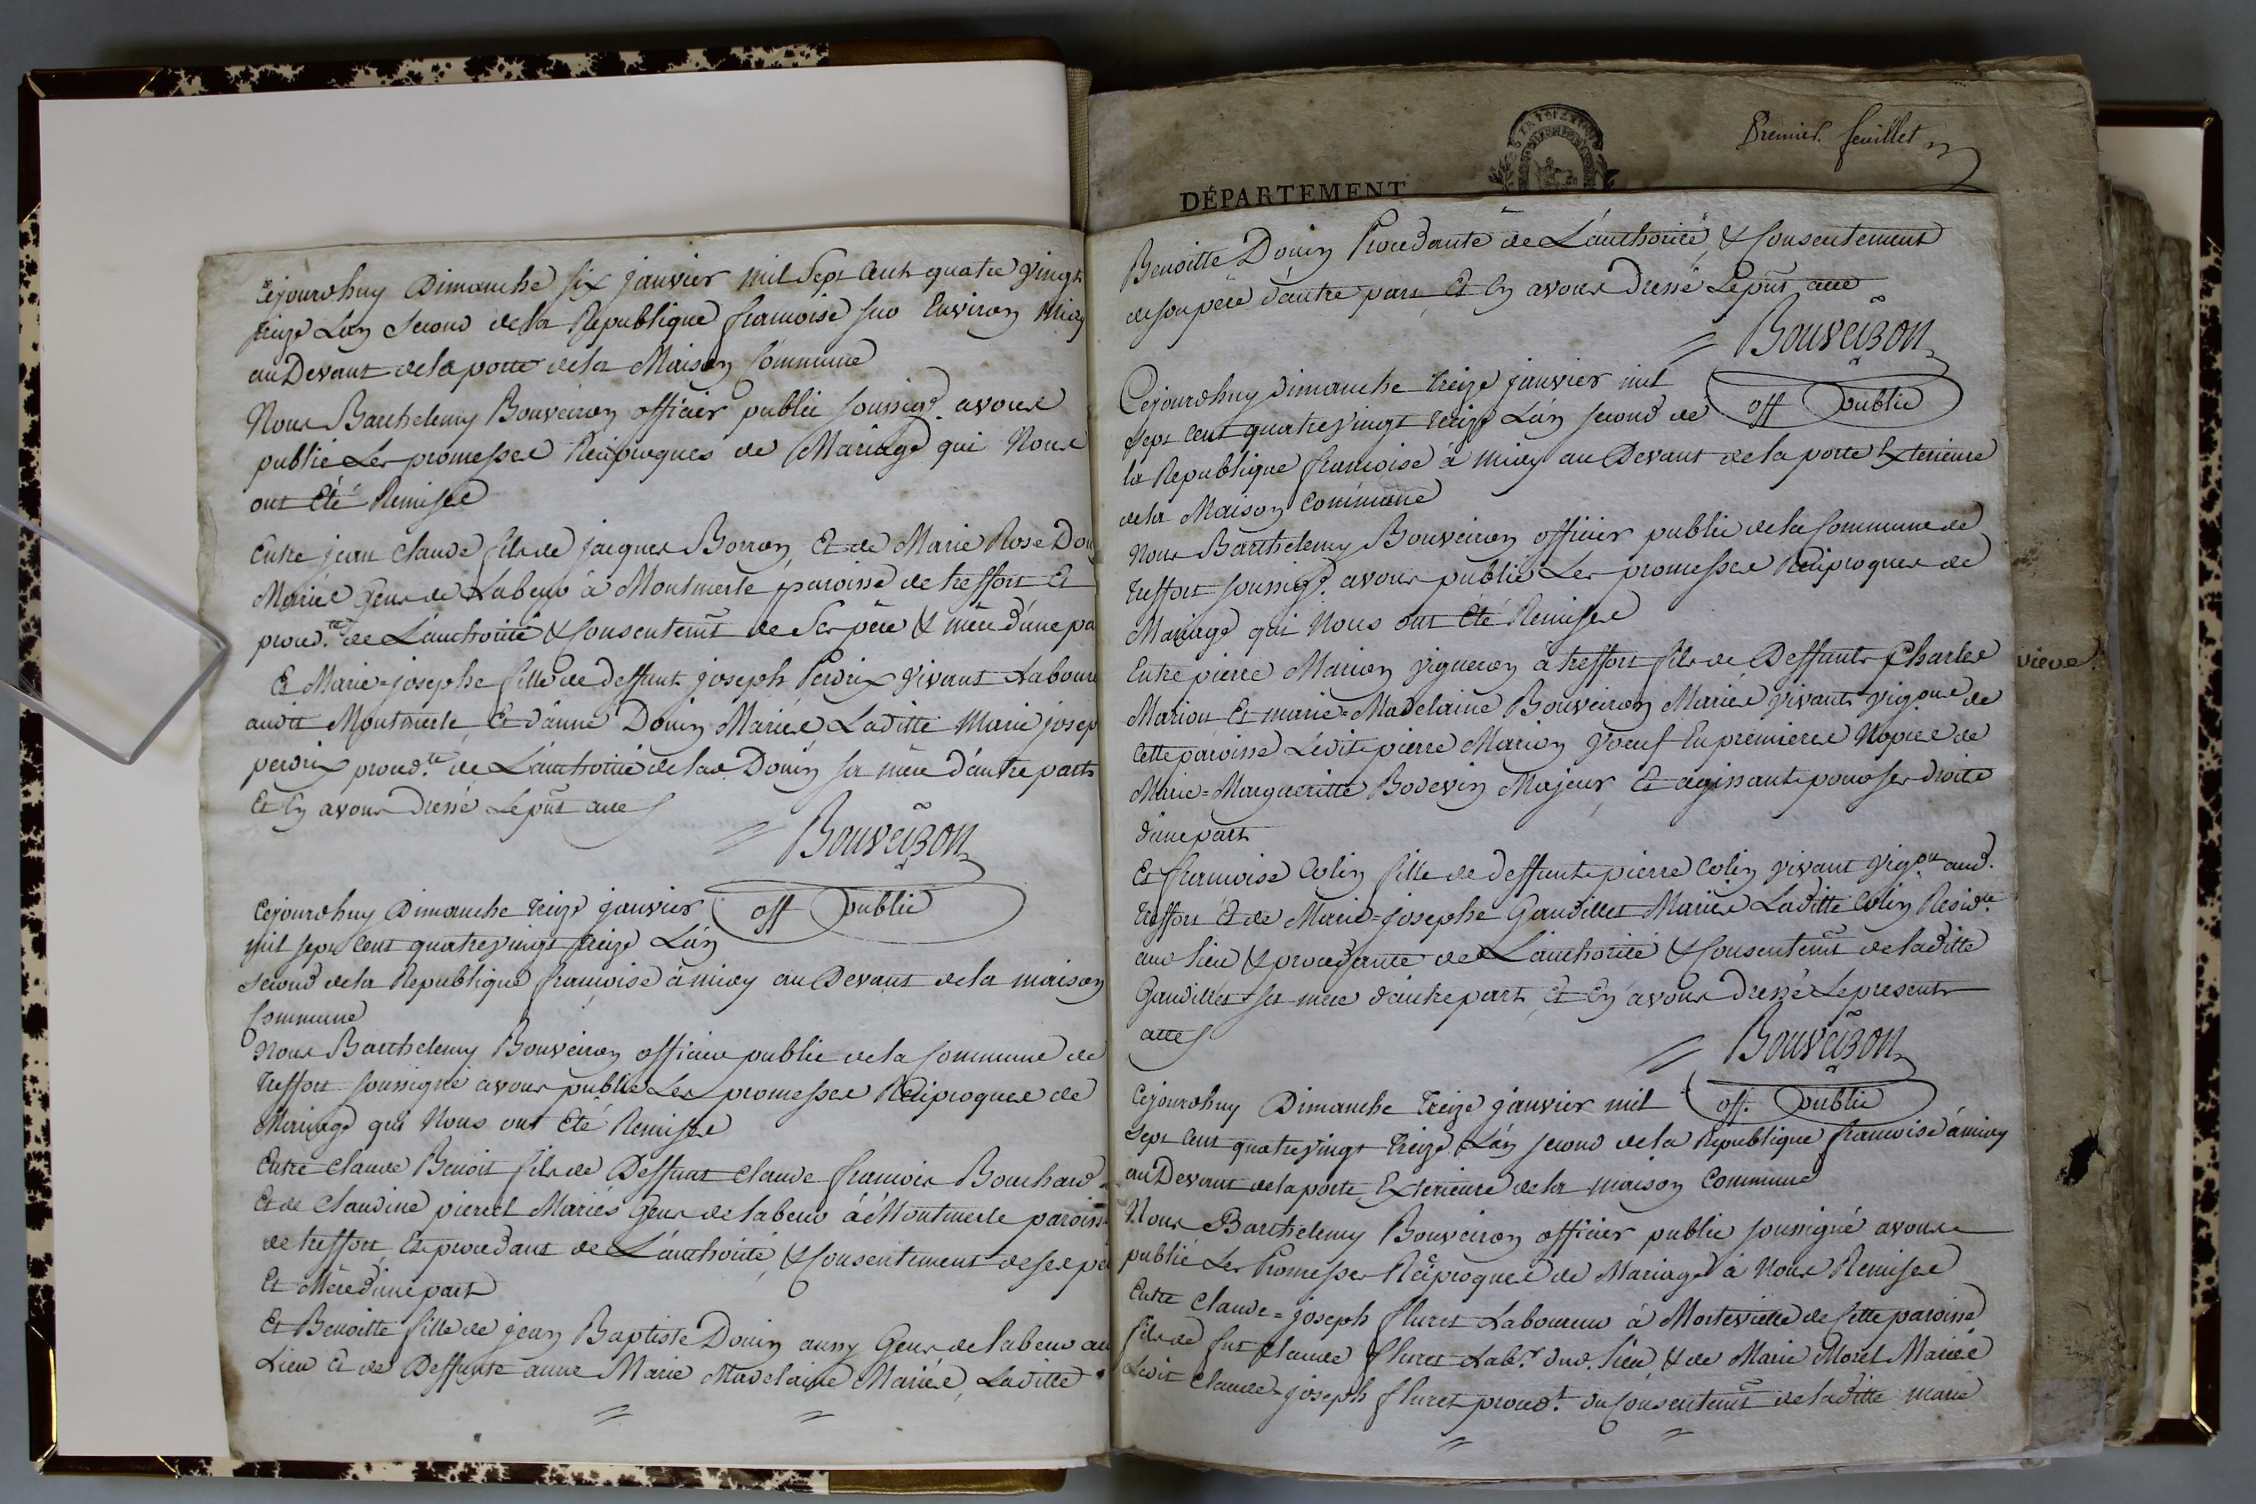 Cejourdhuy Dimanche six janvier mil Sept Cent quatre vingt
treize L'an Second de la Republique francoise sur Environ Midy
au Devant de la porte de la Maison Commune
Nous Barthelemy Bouveiron officier public soussigé. avons
publié Les promesses Réciproques de Mariage qui Nous
ont Eté Remises
Entre jean claude fils de jacques Borron, Et de Marie Rose Dou
Mariés Gens de Labeur à Montmerle paroisse de treffort Et
proced.te de L'authorité & Consentem̃t de Ses père & mère d'une pa
Et Marie=josephe fille de deffunt joseph Perdrix vivant Labour
audit Montmerle, Et d'anne Douin Mariés, Laditte Marie josep
perdrix proced.te de L'authorité de lad. Douin sa mère d'autre part
Et En avons Dressé Le pñt acte
Bouveiron
off public
Cejourdhuy Dimanche treize janvier
mil sept cent quatrevingt treize L'an
second de la Republique françoise à midy au Devant de la maison
Commune
Nous Barthelemy Bouveiron officier public de la Commune de
treffort soussigné avons publié Les promesses Réciproques de
Mariage qui Nous ont Eté Remises
Entre claude Benoit fils de Deffunt claude francois Bouchard
Et de claudine pierrel Mariés Gens de labeur à Montmerle paroiss
de treffort, Et procedant de L'authorité, & Consentement de ses pe
Et Mère d'une part
Et Benoitte fille de jean Baptiste Douin aussy Gens de labeur au
Lieu Et de Deffunte anne Marie Madelaine Mariés, Laditte
Premier feuillet
DÉPARTEMENT
Benoitte Douin Procedante de L'authorité, & Consentement
de son père d'autre part, Et En avons Dressé Le pñt acte
Bouveiron
off public
Cejourdhuy Dimanche treize janvier mil
sept cent quatrevingt treize L'an second de
la Republique françoise à midy au Devant de la porte Exterieure
de la Maison Commune
Nous Barthelemy Bouveiron officier public de la Commune de
treffort soussigé. avons publié Les promesses Réciproques de
Mariage qui Nous ont Eté Remises
Entre pierre Marion vigneron à treffort fils de Deffunts Charles
Marion Et marie=Madelaine Bouveiron Mariés vivants vig.ons de
Cette paroisse Ledit pierre Marion Voeuf En premieres Nopces de
Marie=Margueritte Bodevin Majeur, Et agissant pour ses droits
d'une part
Et francoise Colin fille de deffunt pierre Colin vivant Vig.on aud.
treffort Et de Marie=josephe Gaudillet Mariés Laditte Colin Resid.te
aud lieu & procedante de L'authorité & Consentem̃t de laditte
Gaudillet sa mere d'autre part, Et En avons Dressé Le present
acte
Bouveiron
off. public
Cejourdhuy Dimanche treize janvier mil
Sept cent quatrevingt treize L'an second de la Republique francoise à midy
au Devant de la porte Exterieure de la maison Commune
Nous Barthelemy Bouveiron officier public soussigné avons
publié Les Promesses Réciproques de Mariage à Nous Remises
Entre Claude=joseph fluret Laboureur à Mortevielle de Cette paroisse
fils de fut claude fluret Lab.r dud. lieu & de Marie Morel Mariés
Ledit Claude=joseph fluret proced.t du Consentem̃t de laditte marie